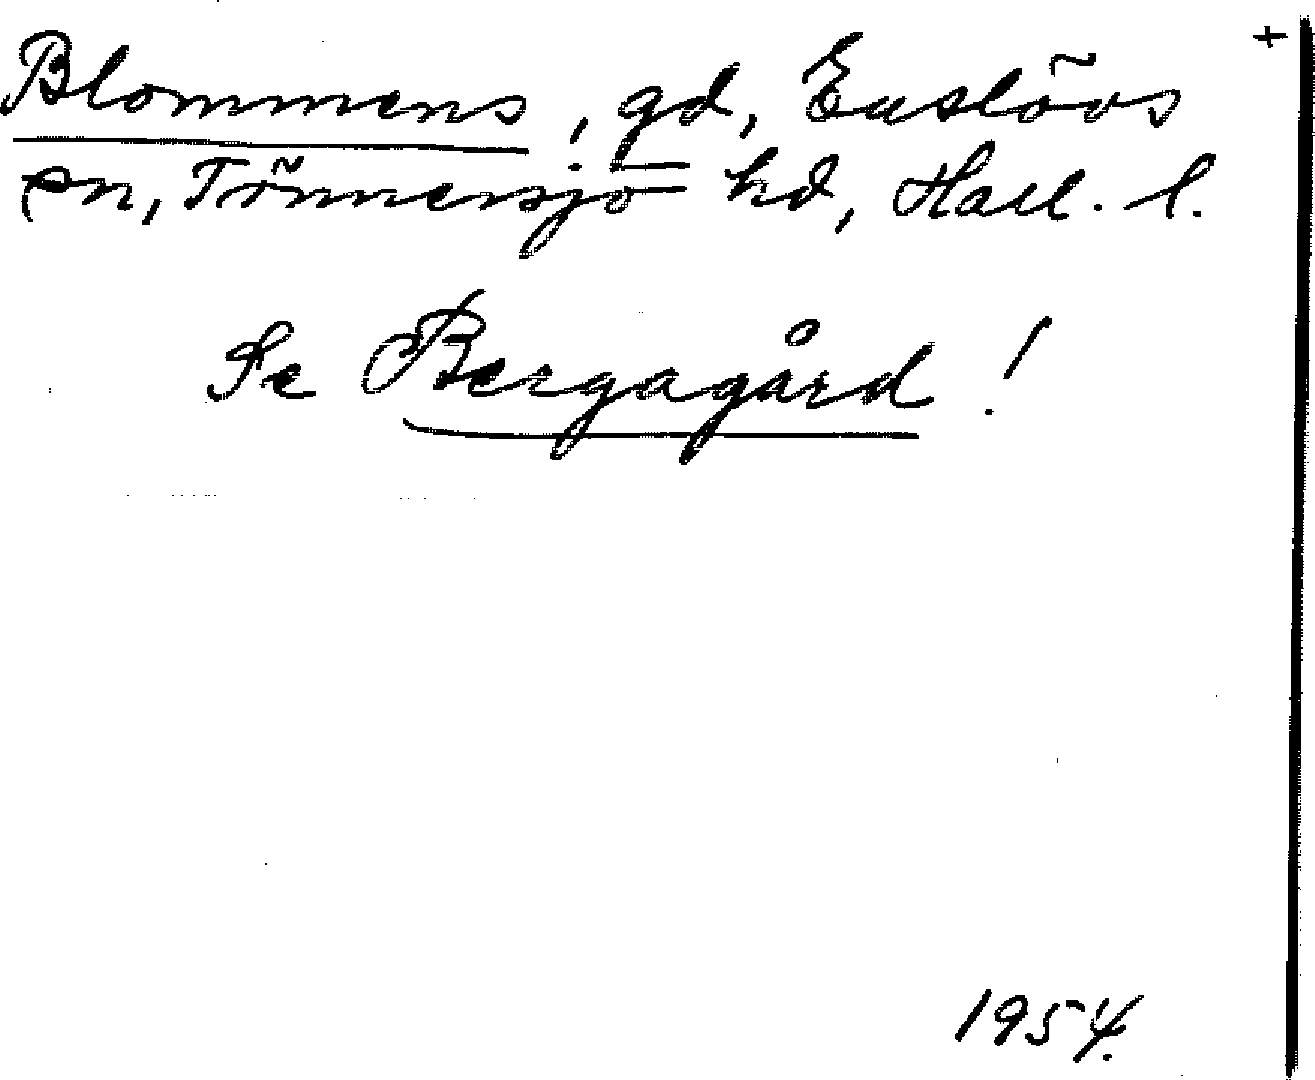 +
Blommens!, gd, Euslövs
sn, Tönnersjö hd, Hall. l.
Se Bergagård!
1954.